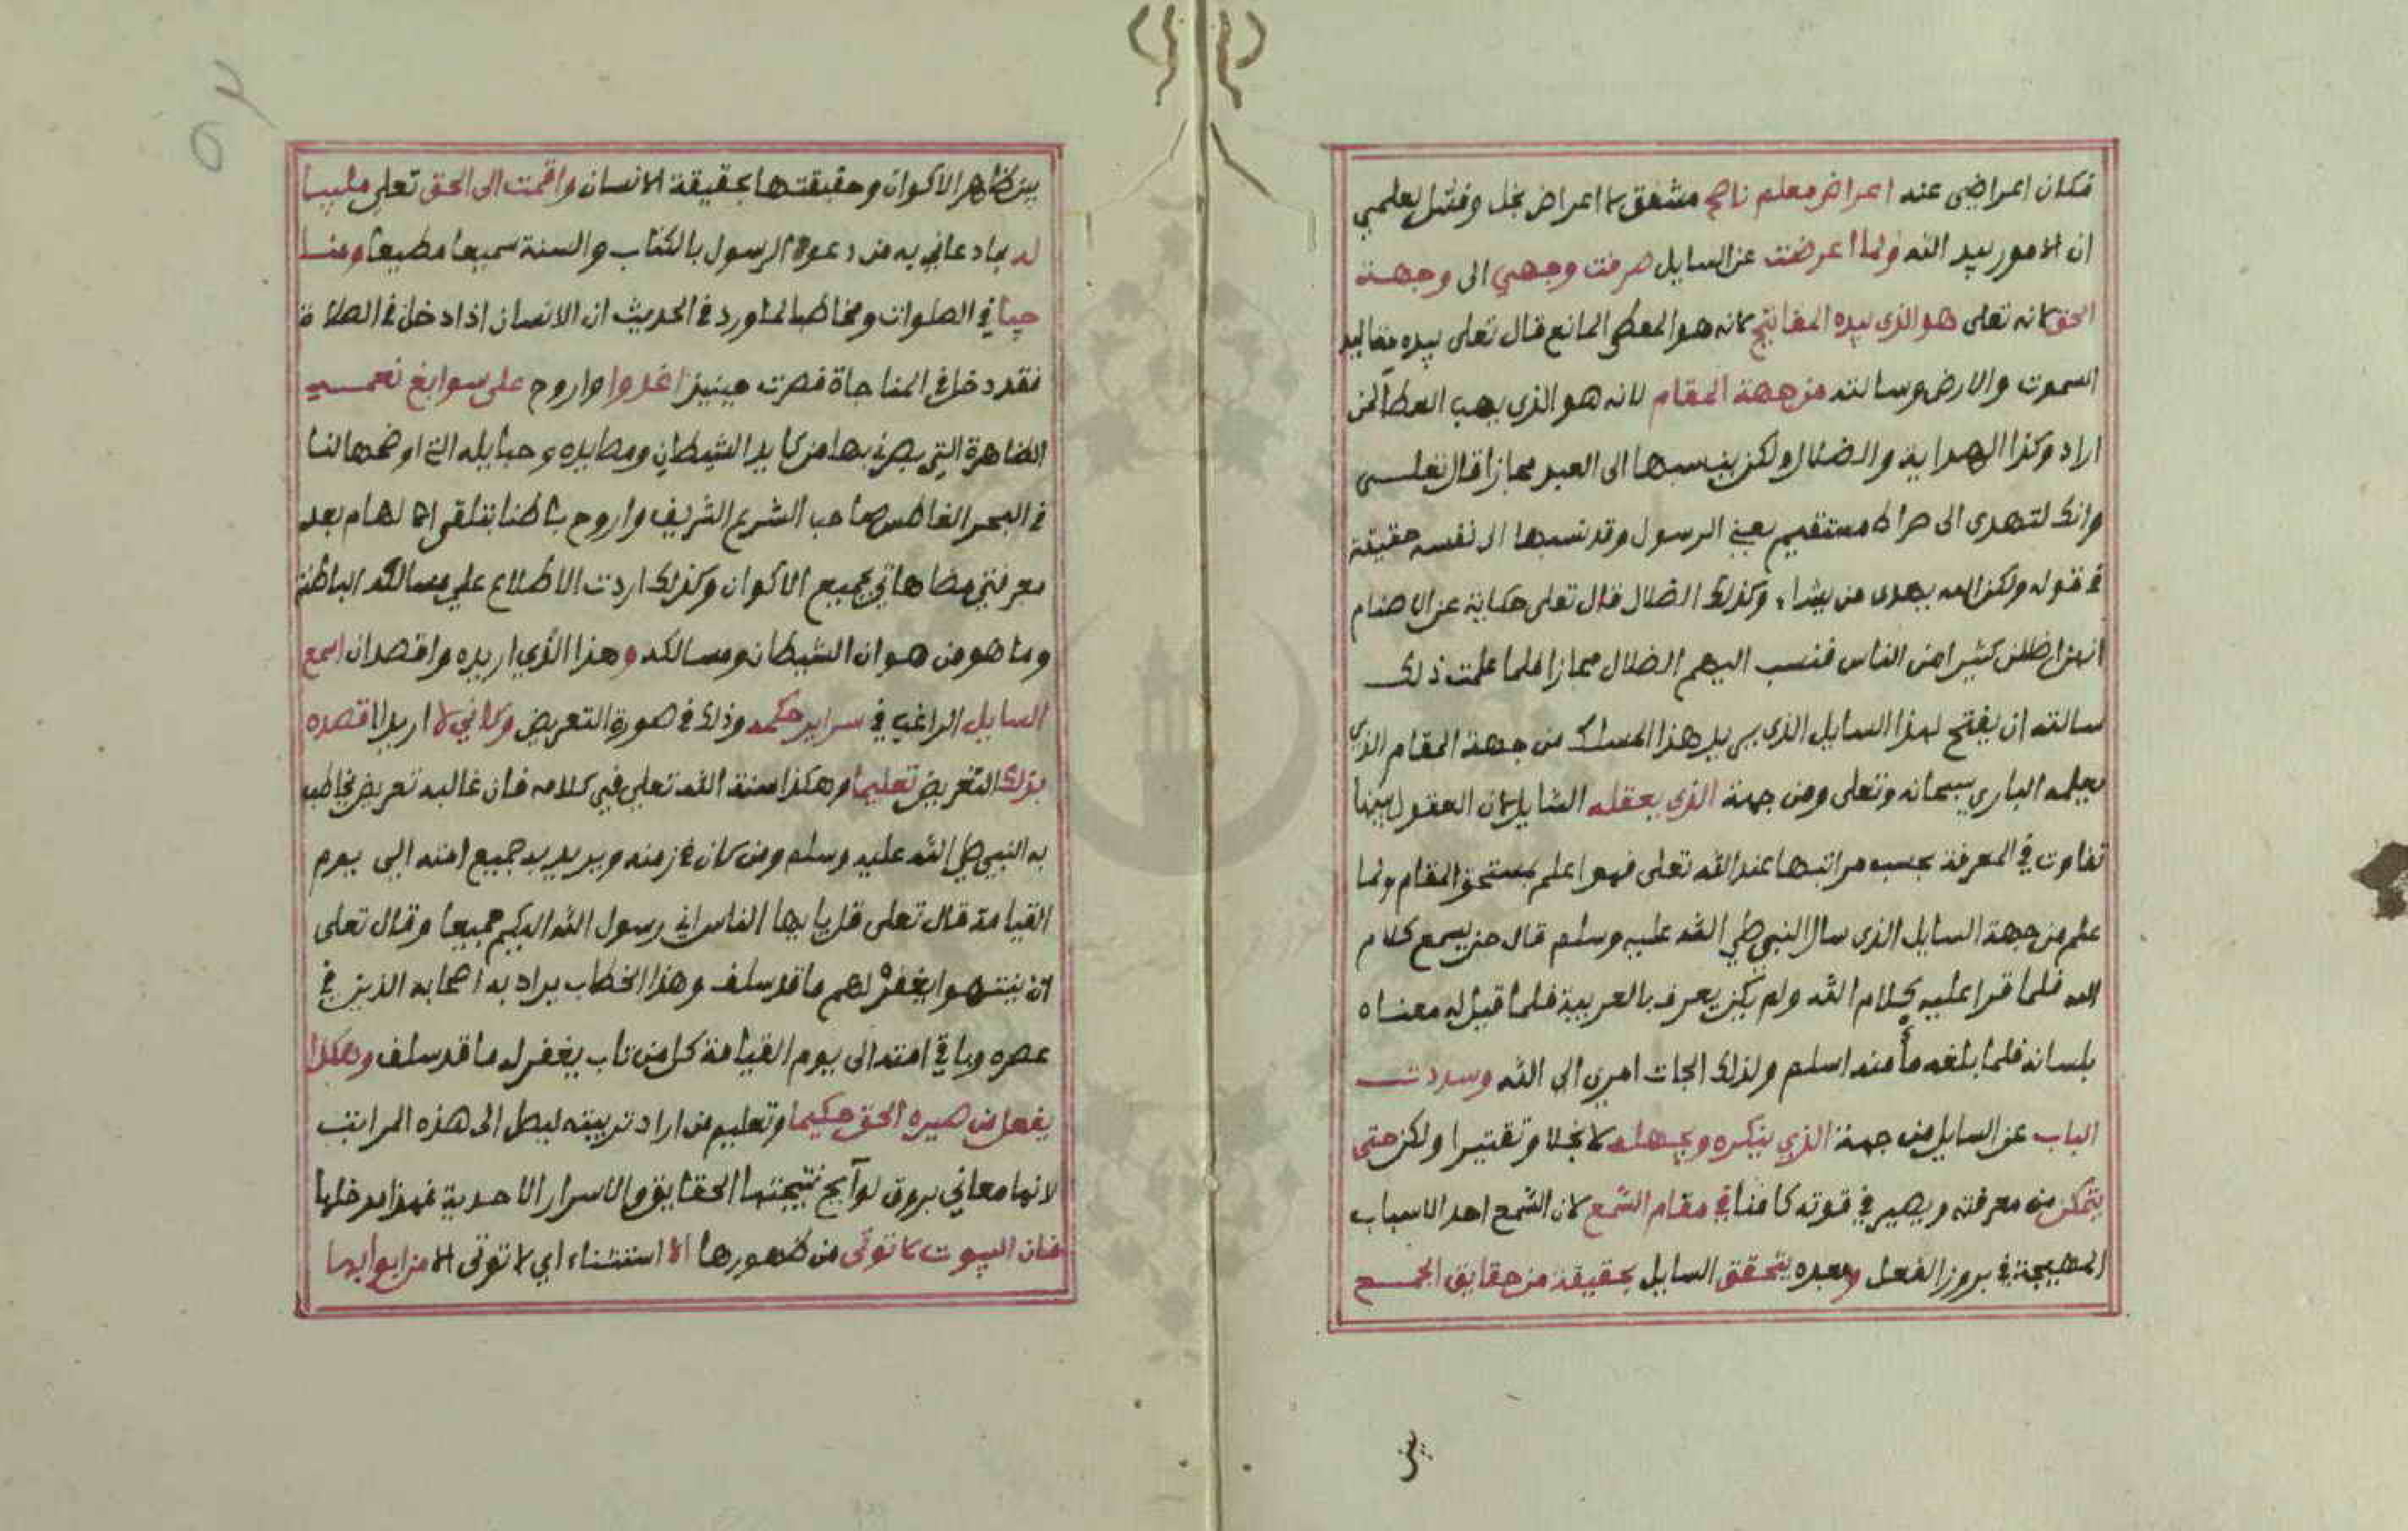 فكان اعراضي عنه اعراض معلم ناصح مشفق لا اعراض بخل وفشل لعلمي
ان الامور بيد الله ولما اعرضت عن السايل صرفت وجهي الى وجهة
الحق لانه تعلى هو الذي بيده المفاتيح لانه هو المعطي المانع قال تعلى بيده مقاليد
السموت والارض وسالته من جهة المقام لانه هو الذي يهب العطا لمن
اراد وكذا الهداية والضلال ولكن ينسبها الى العبد مجازا قال تعلى
وانك لتهدى الى صراط مستقيم يعني الرسول وقد نسبها الى نفسه حقيقة
في قوله ولكن الله يهدى من يشاء وكذلك الضلال قال تعلى حكاية عن الاصنام
انهن اضللن كثيرا من الناس فنسب اليهم الضلال مجازا فلما علمت ذلك
سالته ان يفتح لهذا السايل الذي يريد هذا المسلك من جهة المقام الذي
يعلمه الباري سبحانه وتعلى ومن جهة الذي يعقله السايل لان العقول بينها
تفاوت في المعرفة بحسب مراتبها عند الله تعلى فهو اعلم بمستحق المقام ولما
علم من جهة السايل الذي سال النبي صلي الله عليه وسلم قال حتى يسمع كلام
الله فلما قرا عليه كلام الله ولم يكن يعرف بالعربية فلما قيل له معناه
بلسانه فلما بلغه مأمنه اسلم ولذلك الجات امرى الى الله وسددت
الباب عن السايل من جهة الذي ينكره ويجهله لا بخلا وتقتيرا ولكن حتى
يتمكن من معرفته ويصير في قوته كامنا في مقام السمع لان السمع احد الاسباب
المهيجة في بروز الفعل وبعده يتحقق السايل بحقيقة من حقايق الجمع
بين
بين ظاهر الاكوان وحقيقتها بحقيقة الانسان واقمت الى الحق تعلى ملبيا
له بما دعاني به من دعوة الرسول بالكتاب والسنة سميعا مطيعا ومنا
جيا في الصلوات ومخاطبا لما ورد في الحديث ان الانسان اذا دخل في الصلاة
فقد دخل في المناجاة فصرت حينيذ اغدوا واروح على سوابغ نعمه
الظاهرة التي بصرني بها من كايد الشيطان ومصايده وحبايله التي اوضحها لنا
في البحر الغاطس صاحب الشرع الشريف واروح باطنا بتلقى الالهام بعد
معرفتي مضاهاتي جميع الاكوان وكذلك اردت الاطلاع على مسالكه الباطنة
وما هو من هوان الشيطان ومسالكه وهذا الذي اريده واقصد ان اسمع
السايل الراغب في سراير حكمه وذلك في صورة التعريض وكاني لا اريد اقصده
بذلك التعريض تعليما وهكذا سنة الله تعلى في كلامه فان غالبه تعريض يخاطب
به النبي صلى الله عليه وسلم ومن كان في زمنه ويريد به جميع امته الى يوم
القيامة قال تعلى قل يا ايها الناس اني رسول الله اليكم جميعا وقال تعلى
ان ينتهوا يغفر لهم ما قد سلف وهذا الخطاب يراد به اصحابه الذين في
عصره وباقي امته الى يوم القيامة كل من تاب يغفر له ما قد سلف وهكذا
يفعل من صيره الحق حكيما وتعليم من اراد تربيته ليصل الى هذه المراتب
لانها معاني بروق لوآيح نتيجتها الحقايق والاسرار الاحدية فهذا مدخلها
فان البيوت لا توتى من ظهورها الا استثناء اي لا توتى الا من ابوابها